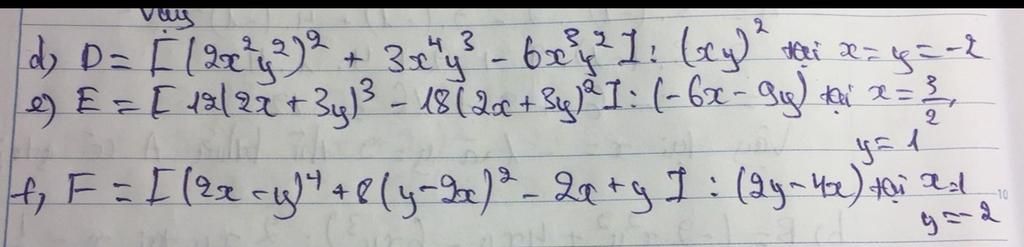 Vậy
d, D = [(2x²y²)² + 3x⁴y³ - 6x³y²] : (xy)² tại x = y = -2
e, E = [12(2x + 3y)³ - 18(2x + 3y)²] : (-6x - 9y) tại x = 3/2,
y = 1
f, F = [(2x - y)⁴ + 8(y - 2x)² - 2x + y] : (2y - 4x) tại x = 1
y = -2